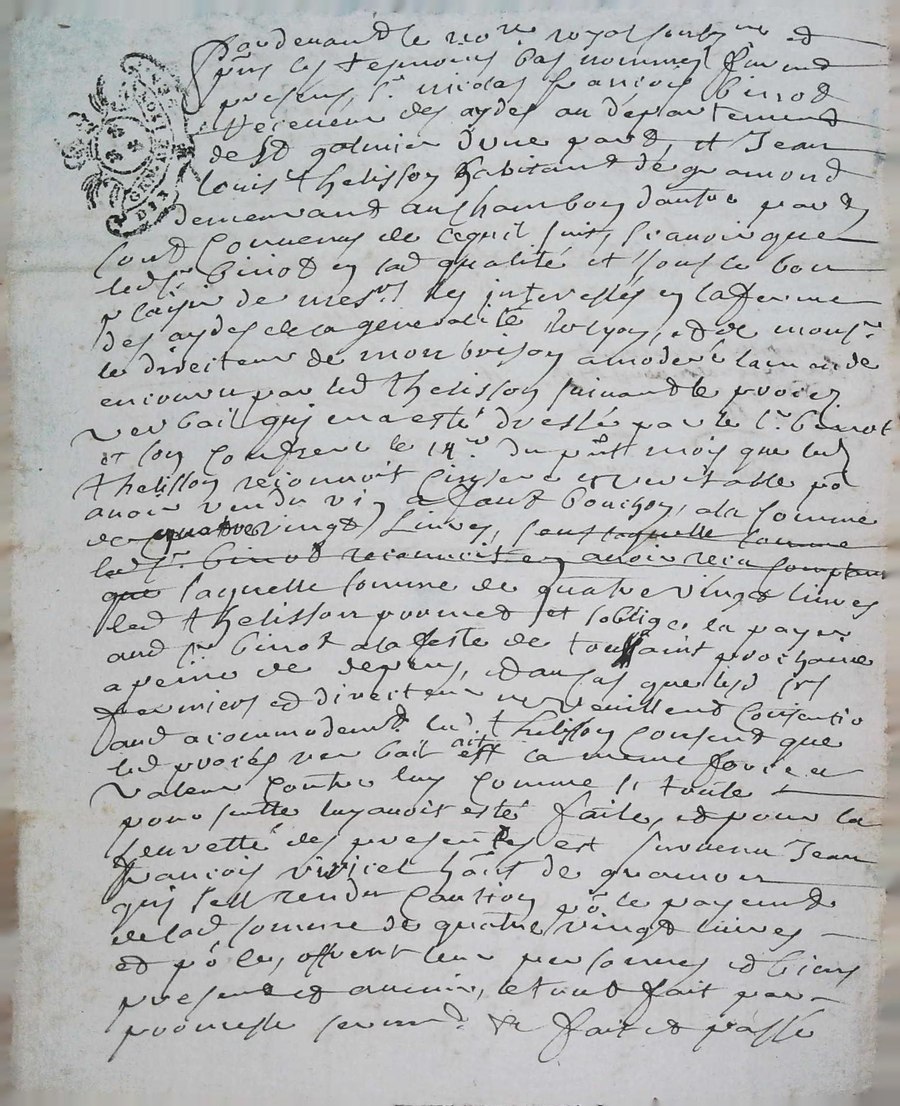 Pardevant le no.re royal soub.ne et
p.nts les tesmoins bas nommes furent
presens, s.r nicolas francois Binod
Receveur des aydes au departement
de S.t galmier d'une part, et Jean
Louis thelisson habitant de gramond
demeurant au Chambon d'autre part
sont Convenus de ce quil suit, scavoir que
led s.r Binod en lad qualité et sous le bon
plaisir de mes.rs les interessés en la ferme
des aydes de la generalité de lyon, et de mons.r
le directeur de monbrison a moderé lamande
encourue par led thelisson suivant le procez
verbail qui en a esté dressé par le s.r binot
et son Confrere le 14.e du p.nt mois que led
thelisson reconnoit sincere et veritable po
avoir vendu vin a faut bouchon, a la somme
de quatre vingt Livres, sous laquelle somme
led s.r Binod reconnoit en avoir receu Comptant
que laquelle somme de quatre vingt livres
led thelisson promet et soblige la payer
aud s.r binot a la feste de toussaint prochaine
a peine de depens, et au cas que lesd srs
fermiers et directeur ne veuillent Consentir
aud acommodem.t led thelisson Consent que
led procés verbail ait la meme force et
valeur Contre luy Comme si toute
poursuitte luy avoit esté faite, et pour la
seuretté des presentes est survenu Jean
francois viricel ha.nt de gramon
qui sest rendu Caution po le payement
de lad somme de quatre vingt livres
et po ce, offrent leur personnes et biens
presents et avenir, et ont fait par
promesse serm.t &c fait et passé